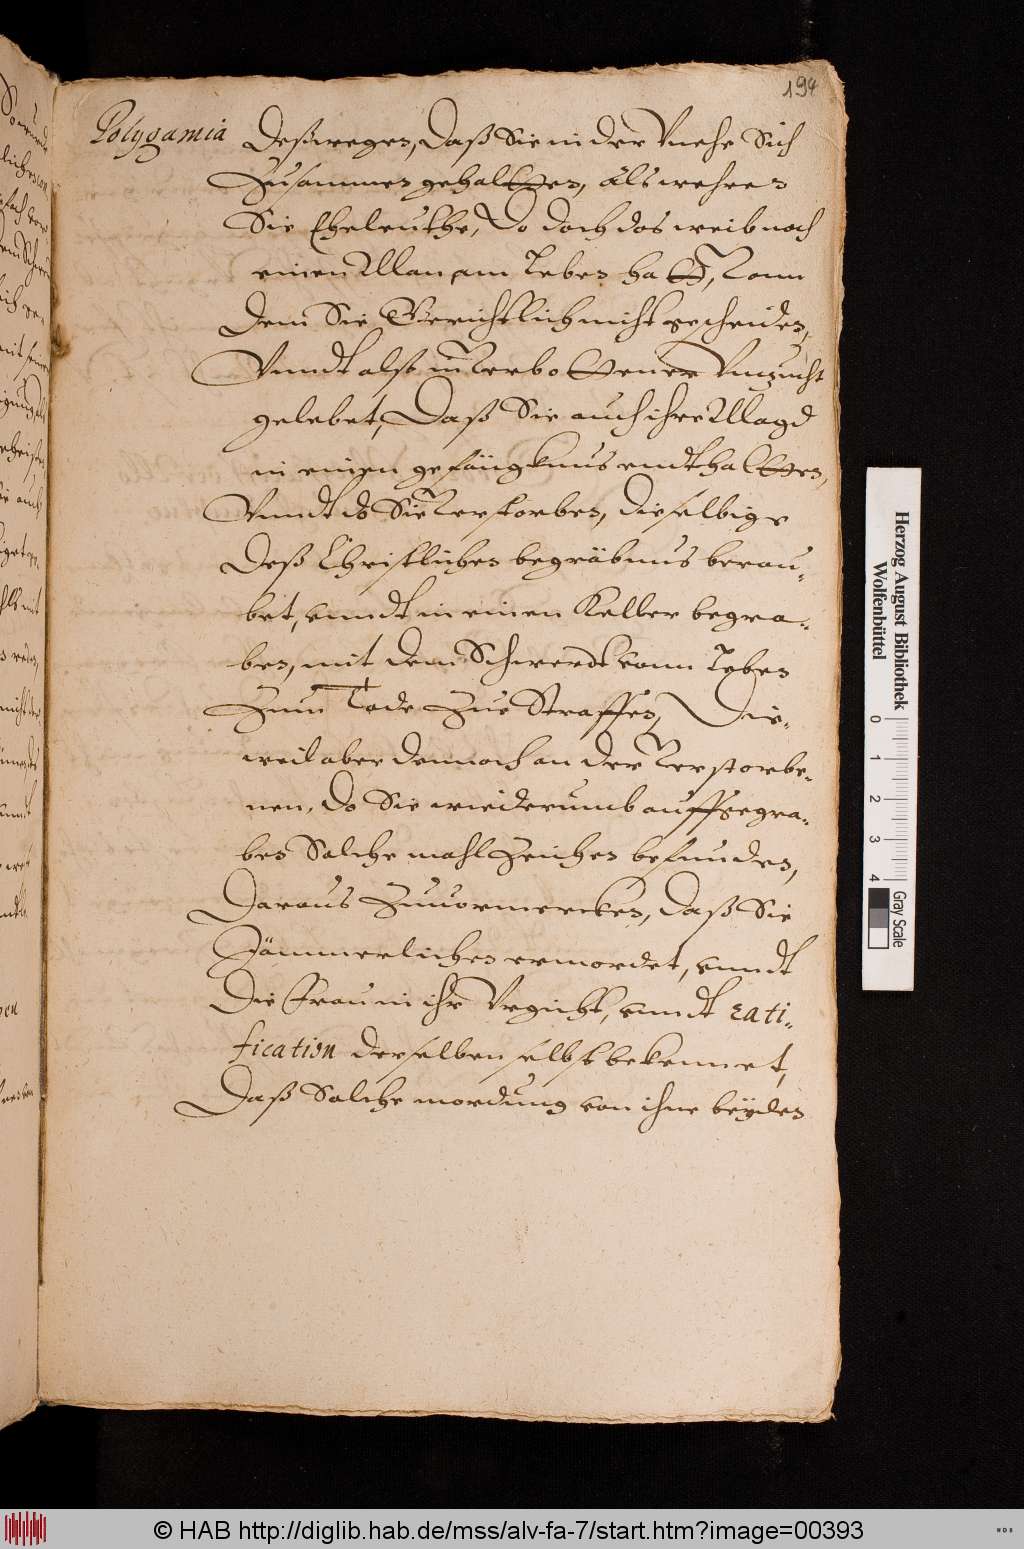 194
Polygamia
Deßwegen, Daß Sie in der Vnehe Sich
Zusammen gehaltten, als wehren
Sie Eheleuthe, Do doch das weib noch
einen Man am Leben hatt, Vonn
dem Sie Gerichtlich nicht gescheiden,
Vnndt also in Verbottener Vnzucht
gelebet, Daß Sie auch ihre Magd
in einen gefängknus endthaltten,
Vnndt do Sie Verstorben, dieselbige
Deß Christlichen begräbnus berau-
bet, vnndt in einen Keller begra-
ben, mit dem Schwerdt vonn Leben
Zum Tode Zue Straffen, Die-
weil aber dennoch an der Verstorbe-
nen, do Sie wiederumb auffgegra-
ben Solche mahlzeichen befunden,
Daraus Zuuormercken, Daß Sie
Jämmerlichen ermordet, vnndt
Die Frau in ihr Vrgicht, vnndt rati-
fication derselben selbst bekennet,
Daß Solche mordung von ihne beyden
Herzog August Bibliothek
Wolfenbüttel
0 1 2 3 4
Gray Scale
© HAB http://diglib.hab.de/mss/alv-fa-7/start.htm?image=00393